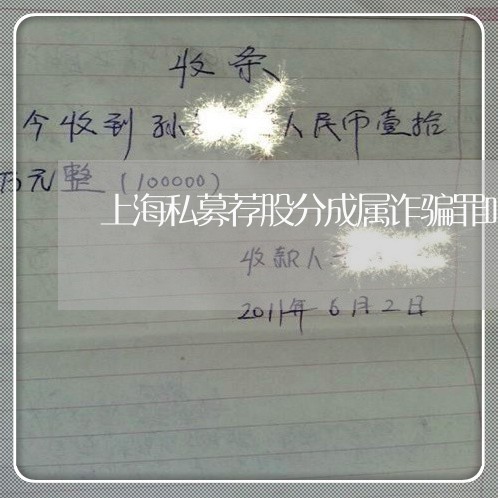 收条
今收到孙 人民币壹拾
万元整(100000)
上海私募荐股分成属诈骗罪
收款人
2011年6月2日